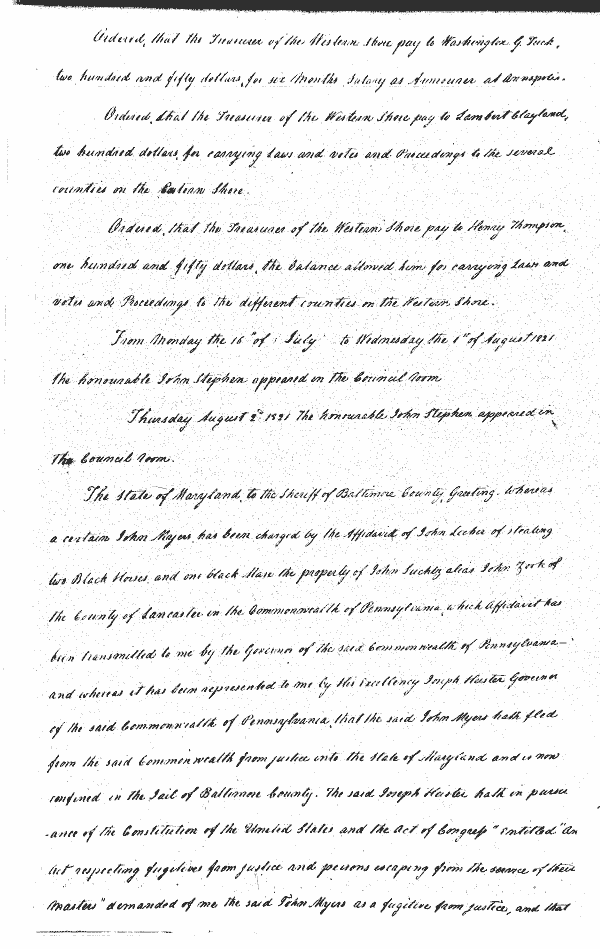 Ordered, that the Treasurer of the Western Shore pay to Washington G. Tuck,
two hundred and fifty dollars, for six Months Salary as Armourer at Annapolis.
Ordered, that the Treasurer of the Western Shore pay to Lambert Clayland,
two hundred dollars, for carrying Laws and votes and Proceedings to the several
counties on the Eastern Shore.
Ordered, that the Treasurer of the Western Shore pay to Henry Thompson,
one hundred and fifty dollars, the balance allowed him for carrying Laws and
votes and Proceedings to the different counties on the Western Shore.
From Monday the 16" of July to Wednesday the 1st of August 1821
the honourable John Stephen appeared in the Council room
Thursday August 2d 1821 The honourable John Stephen appeared in
the Council room.
The State of Maryland, to the Sheriff of Baltimore County, Greeting. Whereas
a certain John Myers, has been charged by the Affidavit of John Lecher of stealing
two Black Horses, and one black Mare the property of John alias John Zook of
the County of Lancaster in the Commonwealth of Pennsylvania, which Affidavit has
been transmitted to me by the Governor of the said Commonwealth of Pennsylvania—
and whereas it has been represented to me by His Excellency Joseph Heister Governor
of the said Commonwealth of Pennsylvania, that the said John Myers hath fled
from the said Commonwealth from justice into the State of Maryland and is now
confined in the Jail of Baltimore County. The said Joseph Heister hath in pursu
-ance of the Constitution of the United States and the Act of Congress "entitled" An
Act respecting fugitives from justice and persons escaping from the service of their
Masters" demanded of me the said John Myers as a fugitive from justice, and that